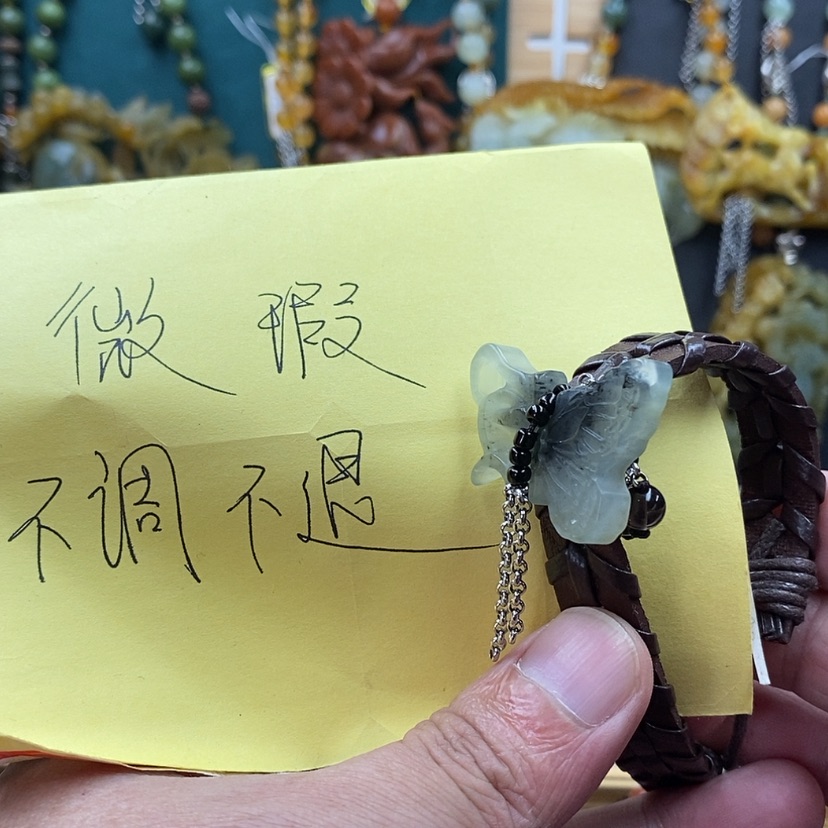 微瑕
不调不退